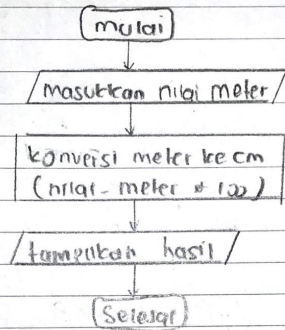 mulai
masukkan nilai meter
konversi meter ke cm
(nilai-meter * 100)
tampilkan hasil
Selesai